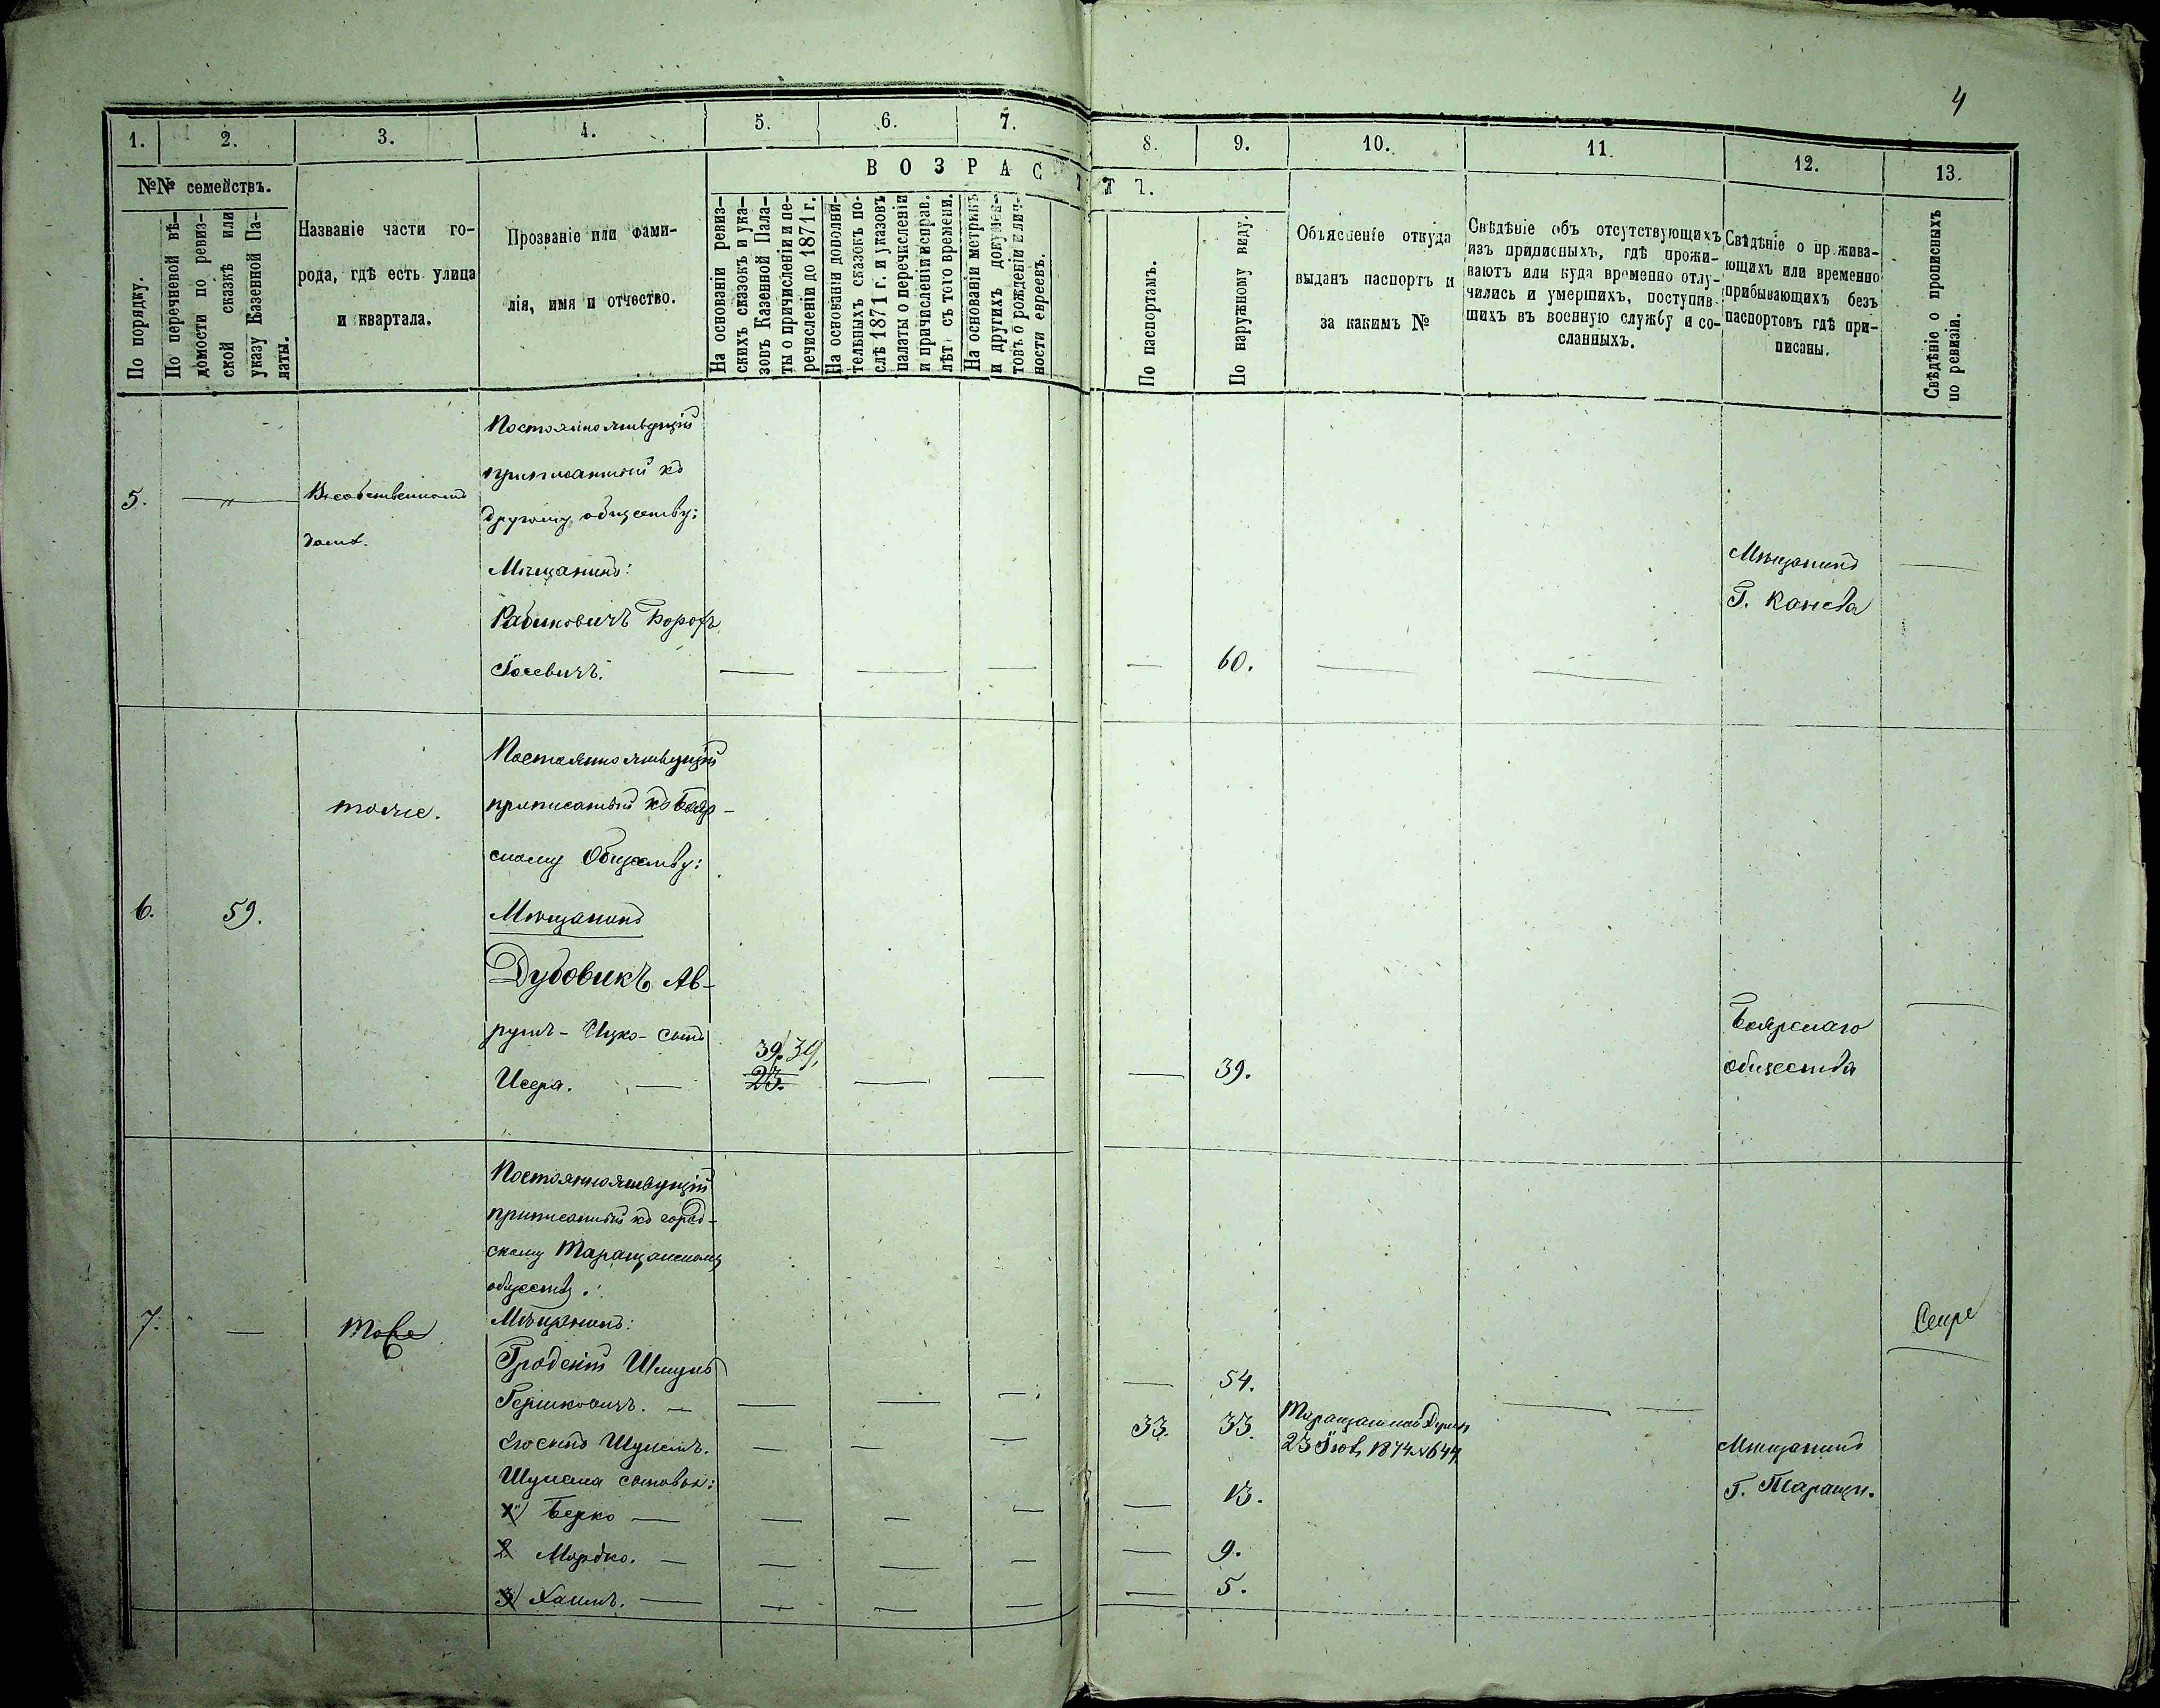 4
1. 2. 3. 4. 5. 6. 7. 8. 9. 10. 11. 12. 13.
№№ семействъ.
По порядку.
По перечневой вѣ-
домости по ревиз-
ской сказкѣ или
указу Казенной Па-
латы.
Названіе части го-
рода, гдѣ есть улица
и квартала.
Прозваніе или фами-
лія, имя и отчество.
ВОЗРАСТЪ.
На основаніи ревиз-
скихъ сказокъ и ука-
зовъ Казенной Пала-
ты о причисленіи и пе-
речисленіи до 1871 г.
На основаніи дополни-
тельныхъ сказокъ по-
слѣ 1871 г. и указовъ
палаты о перечисленіи
и причисленіи исправ.
лѣт. съ того времени.
На основаніи метрикъ
и другихъ докумен-
товъ о рожденіи и лич-
ности евреевъ.
По паспортамъ.
По наружному виду.
Объясненіе откуда
выданъ паспортъ и
за какимъ №
Свѣдѣніе объ отсутствующихъ
изъ приписныхъ, гдѣ прожи-
ваютъ или куда временно отлу-
чились и умершихъ, поступив-
шихъ въ военную службу и со-
сланныхъ.
Свѣдѣніе о прожива-
ющихъ или временно
прибывающихъ безъ
паспортовъ гдѣ при-
писаны.
Свѣдѣніе о прописныхъ
по ревизіи.
Постоянно живущій
приписанный къ
другому обществу:
5. — " — Въ собственномъ
домѣ.
Мѣщанинъ:
Рабиновичъ Борохъ
Іосевичъ. — — — — 60. — —
Мѣщанинъ —
Г. Канева
Постоянно живущій
тоже. приписанный къ Бояр-
скому Обществу:
6. 59. Мѣщанинъ
Дубовикъ Ав-
румъ - Ицко - сынъ
39. 39.
Исера. — 23. — — — 39.
Боярскаго —
общества
Постоянно живущій
приписанный къ город-
скому Таращанскому
обществу.
7. — тоже Мѣщанинъ:
Гродскій Шмуль
Гершковичъ. — — — — — 54. — —
Его сынъ Шулимъ. — — — 33. 33.
Таращанской Думы,
23 Іюл, 1874 № 644
Шулима сыновья:
1) Берко — — — — — 13.
2 Мордко. — — — — — 9.
3) Хаимъ. — — — — — 5.
Мѣщанинъ
Г. Таращи.